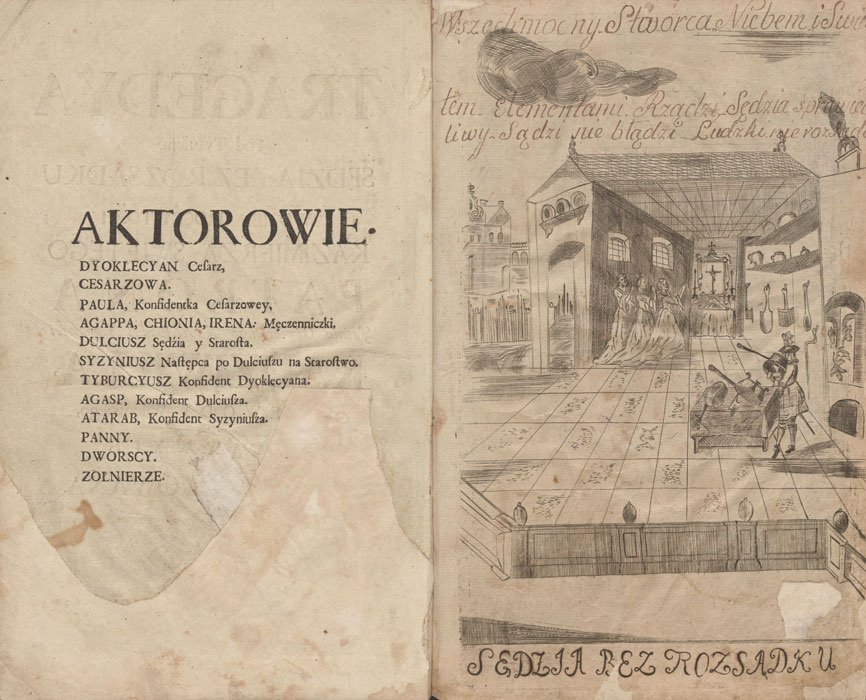 AKTOROWIE.
DYOKLECYAN Ceſarz,
CESARZOWA.
PAULA, Konfidentka Ceſarzowey,
AGAPPA, CHIONIA, IRENA: Męczenniczki,
DULCIUSZ Sędzia y Staroſta.
SYZYNIUSZ Naſtępca po Dulciuſzu na Staroſtwo,
TYBURCYUSZ Konfident Dyoklecyana.
AGASP, Konfident Dulciuſza.
ATARAB, Konfident Syzyniuſza.
PANNY.
DWORSCY.
ZOŁNIERZE.
Wszechmocny Stworca Niebem i Swia
tem. Elementami. Rządzi. Sędzia sprawied
liwy. Sądzi nie błądzi Ludzki nierozsąd
SĘDZIA BEZ ROZSĄDKU